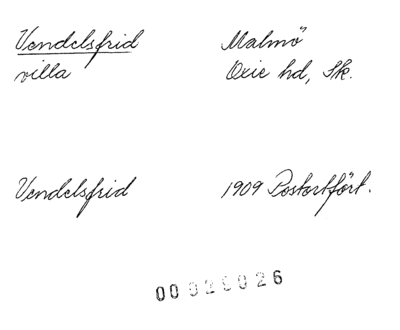 Vendelsfrid Malmö
villa Oxie hd, Sk.
Vendelsfrid 1909 Postortfört.